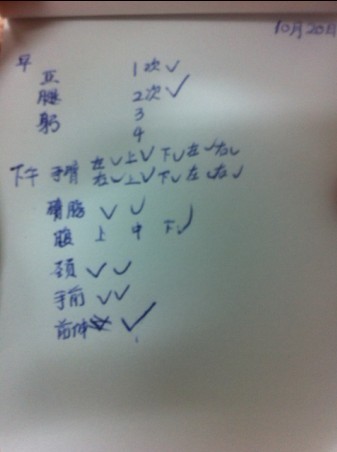 10月20日
早
压 1次 ✓
腿 2次 ✓
躬 3
4
下午 手臂 左✓ 上✓ 下✓ 左✓ 右✓
右✓ 上✓ 下✓ 左✓ 右✓
✓ ✓
腹 上 中 下✓
颈 ✓✓
手前 ✓✓
前伸 ✓